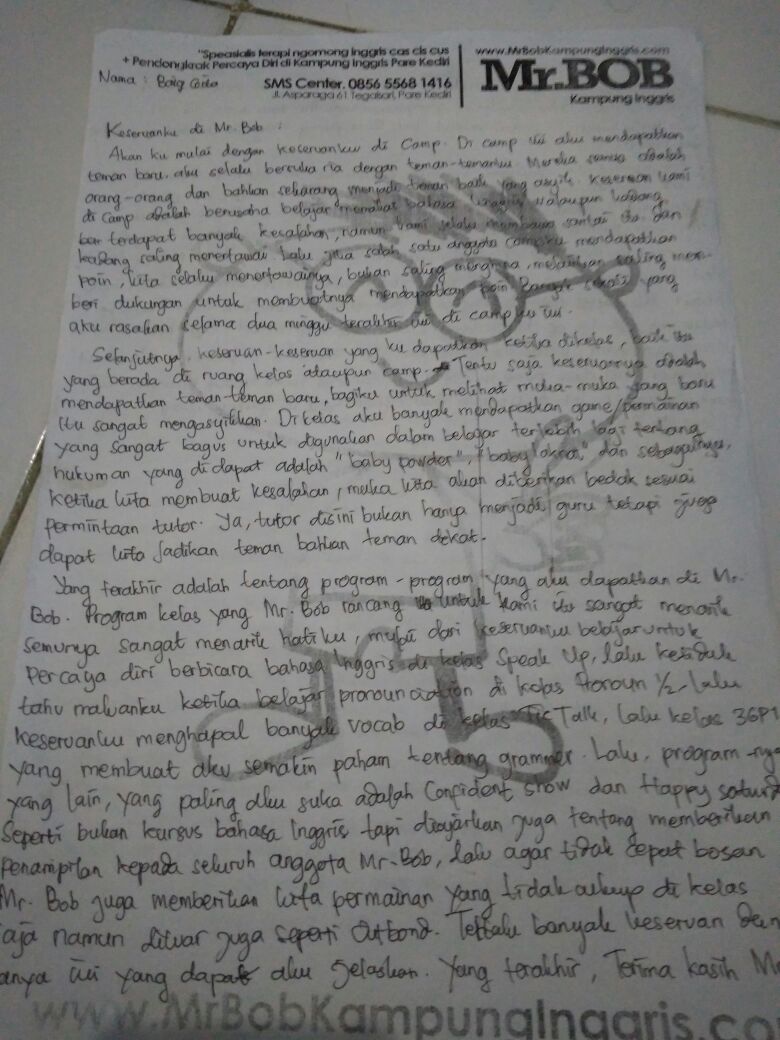 "Speasialis terapi ngomong Inggris cas cis cus
+ Pendongkrak Percaya Diri di Kampung Inggris Pare Kediri
SMS Center. 0856 5568 1416
Jl. Asparaga 61 Tegalsari, Pare Kediri
www.MrBobKampungInggris.com
Mr.BOB
Kampung Inggris
Nama :
Keseruanku di Mr. Bob :
Akan ku mulai dengan keseruanku di Camp. Di camp ini aku mendapatkan
teman baru. aku selalu bersuka ria dengan teman-temanku. Mereka semua adalah
orang-orang dan bahkan sekarang menjadi teman baik yang asyik. keseruan kami
di camp adalah berusaha belajar memakai bahasa Inggris walaupun kadang
terdapat banyak kesalahan, namun kami selalu membawa santai itu dan
kadang saling menertawai. Lalu jika salah satu anggota campku mendapatkan
poin, kita selalu menertawainya, bukan saling menghina, melainkan saling mem-
beri dukungan untuk membuatnya mendapatkan poin. Banyak sekali yang
aku rasakan selama dua minggu terakhir ini di camp ku ini.
Selanjutnya, keseruan-keseruan yang ku dapatkan ketika dikelas, baik itu
yang berada di ruang kelas ataupun camp. Tentu saja keseruannya adalah
mendapatkan teman-teman baru, bagiku untuk melihat muka-muka yang baru
itu sangat mengasyikkan. Di kelas aku banyak mendapatkan game/permainan
yang sangat bagus untuk digunakan dalam belajar terlebih lagi tentang
hukuman yang didapat adalah "baby powder", "baby dan sebagainya,
ketika kita membuat kesalahan, muka kita akan diberikan bedak sesuai
permintaan tutor. Ya, tutor disini bukan hanya menjadi guru tetapi juga
dapat kita jadikan teman bahkan teman dekat.
Yang terakhir adalah tentang program-program yang aku dapatkan di Mr.
Bob. Program kelas yang Mr. Bob rancang untuk kami itu sangat menarik
semunya sangat menarik hatiku, mulai dari keseruanku belajar untuk
Percaya diri berbicara bahasa Inggris di kelas Speak Up, lalu ketidak
tahu maluanku ketika belajar pronounciation di kelas Pronoun 1/2, Lalu
keseruanku menghapal banyak vocab di kelas Tic Talk, lalu kelas 36P1
yang membuat aku semakin paham tentang grammer. Lalu, program-nya
yang lain, yang paling aku suka adalah Confident Show dan Happy
Seperti bukan kursus bahasa Inggris tapi diajarkan juga tentang memberikan
Penampilan kepada seluruh anggota Mr. Bob, lalu agar tidak cepat bosan
Mr. Bob juga memberikan kita permainan yang tidak cukup di kelas
aja namun diluar juga seperti Outbond. Terlalu banyak keseruan dan
anya ini yang dapat aku jelaskan. Yang terakhir, Terima kasih
www.MrBobKampungInggris.com